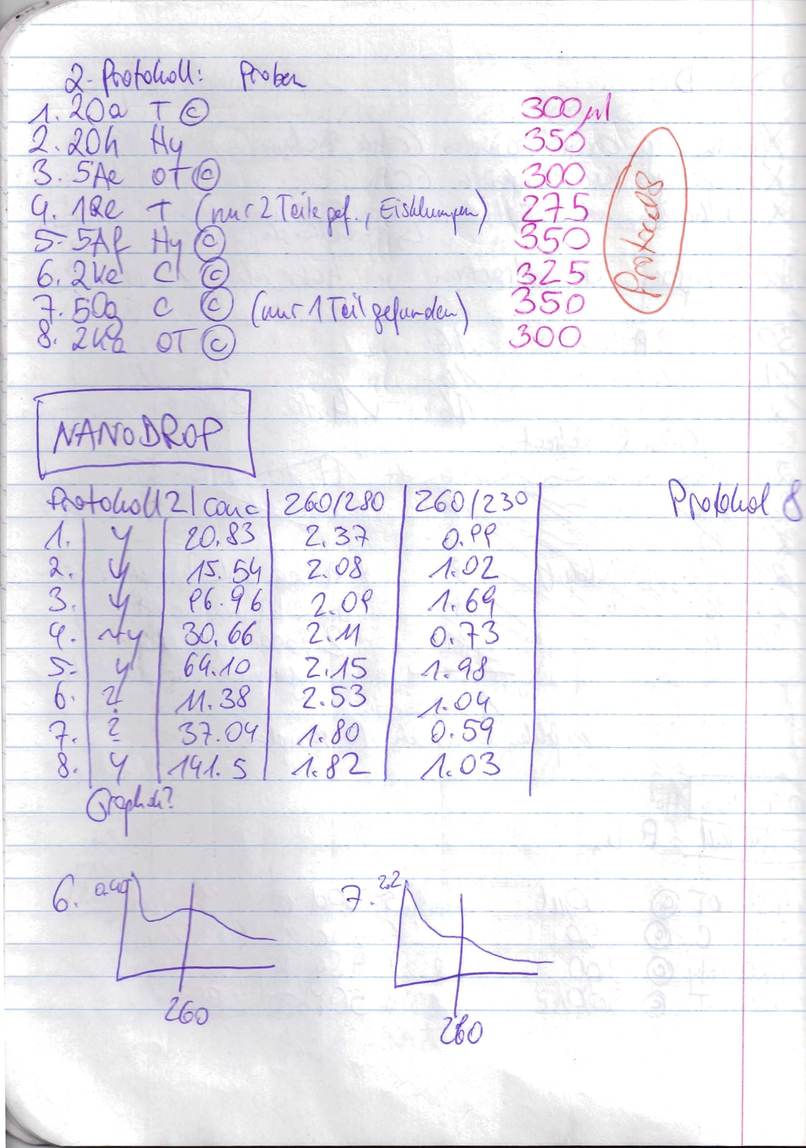 2. Protokoll: Proben
1. 20a T © 300 µl
2. 20h Hy 350
3. 5Ae OT © 300
4. 1Re T (nur 2 Teile gef., Eisklumpen) 275
5. 5Af Hy © 350
6. 2Ke C © 325
7. 50g C © (nur 1 Teil gefunden) 350
8. OT © 300
Protocol 8
NANODROP
Protokoll 2 | conc | 260/280 | 260/230
Protokol 8
1. y 20.83 2.37 0.99
2. y 15.54 2.08 1.02
3. y 96.96 2.09 1.69
4. ~y 30.66 2.11 0.73
5. y 64.10 2.15 1.98
6. ? 11.38 2.53 1.04
7. ? 37.04 1.80 0.59
8. y 141.5 1.82 1.03
6. 7. 2.2
260
260